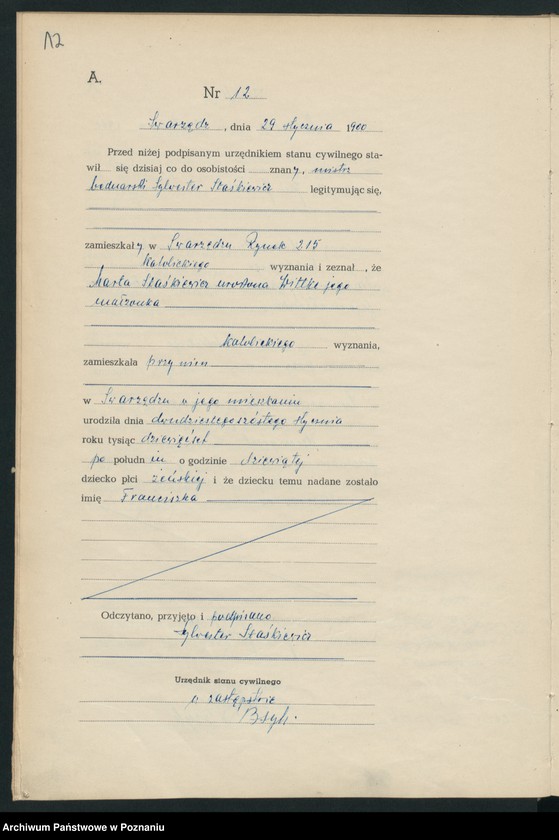 12
A.
Nr 12
Swarzędz, dnia 29 stycznia 1900
Przed niżej podpisanym urzędnikiem stanu cywilnego sta-
wił się dzisiaj co do osobistości znany, mistrz
bednarski Sylvester Staśkiewicz legitymując się,
zamieszkały w Swarzędzu Rynek 215
katolickiego wyznania i zeznał, że
Marta Staśkiewicz urodzona Wittke jego
małżonka
katolickiego wyznania,
zamieszkała przy nim
w Swarzędzu w jego mieszkaniu
urodziła dnia dwudziestegoszóstego stycznia
roku tysiąc dziewięćset
po południu o godzinie dziewiątej
dziecko płci żeńskiej i że dziecku temu nadane zostało
imię Franciszka
Odczytano, przyjęto i podpisano
Sylvester Staśkiewicz
Urzędnik stanu cywilnego
w zastępstwie
Archiwum Państwowe w Poznaniu